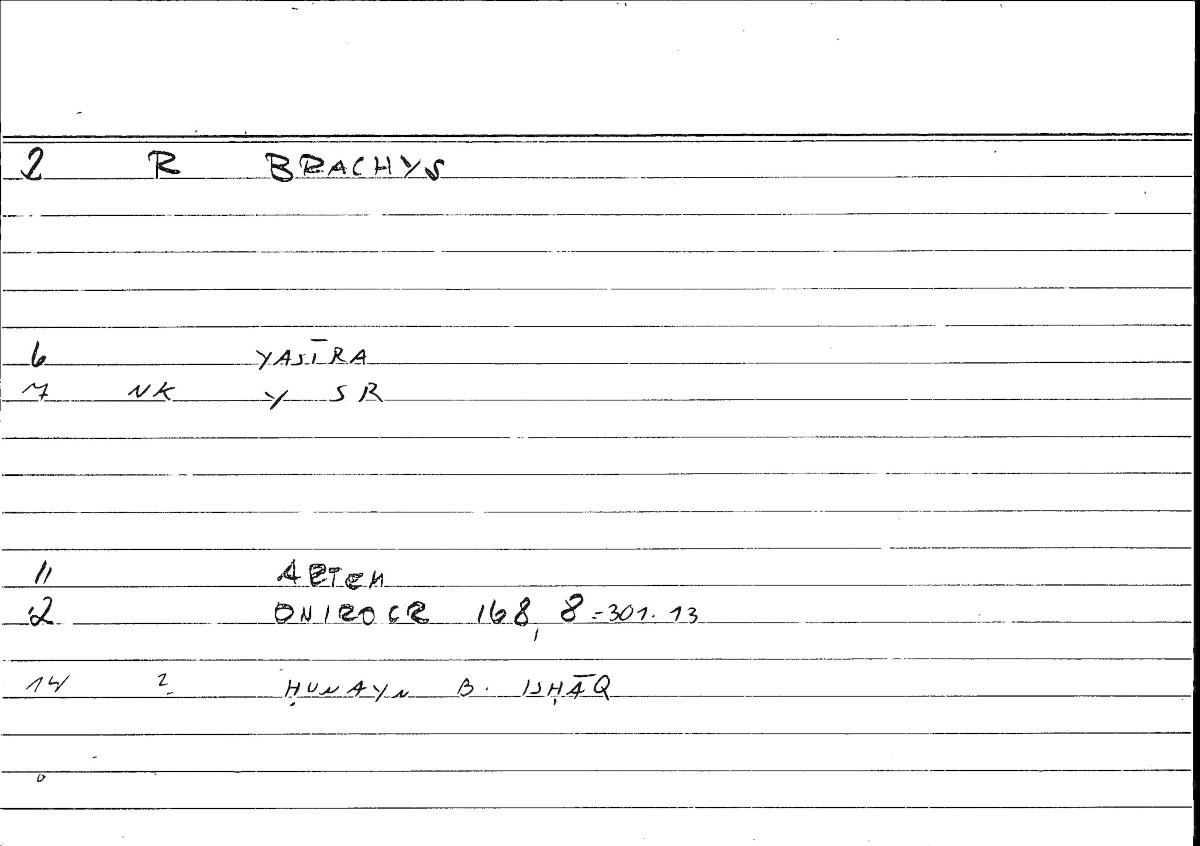 2 R BRACHYS
6 YASĪRA
7 NK Y SR
11 ARTEM
12 ONIROCR 168, 8 = 301.13
14 2 ḤUNAYN B. ISḤĀQ
0